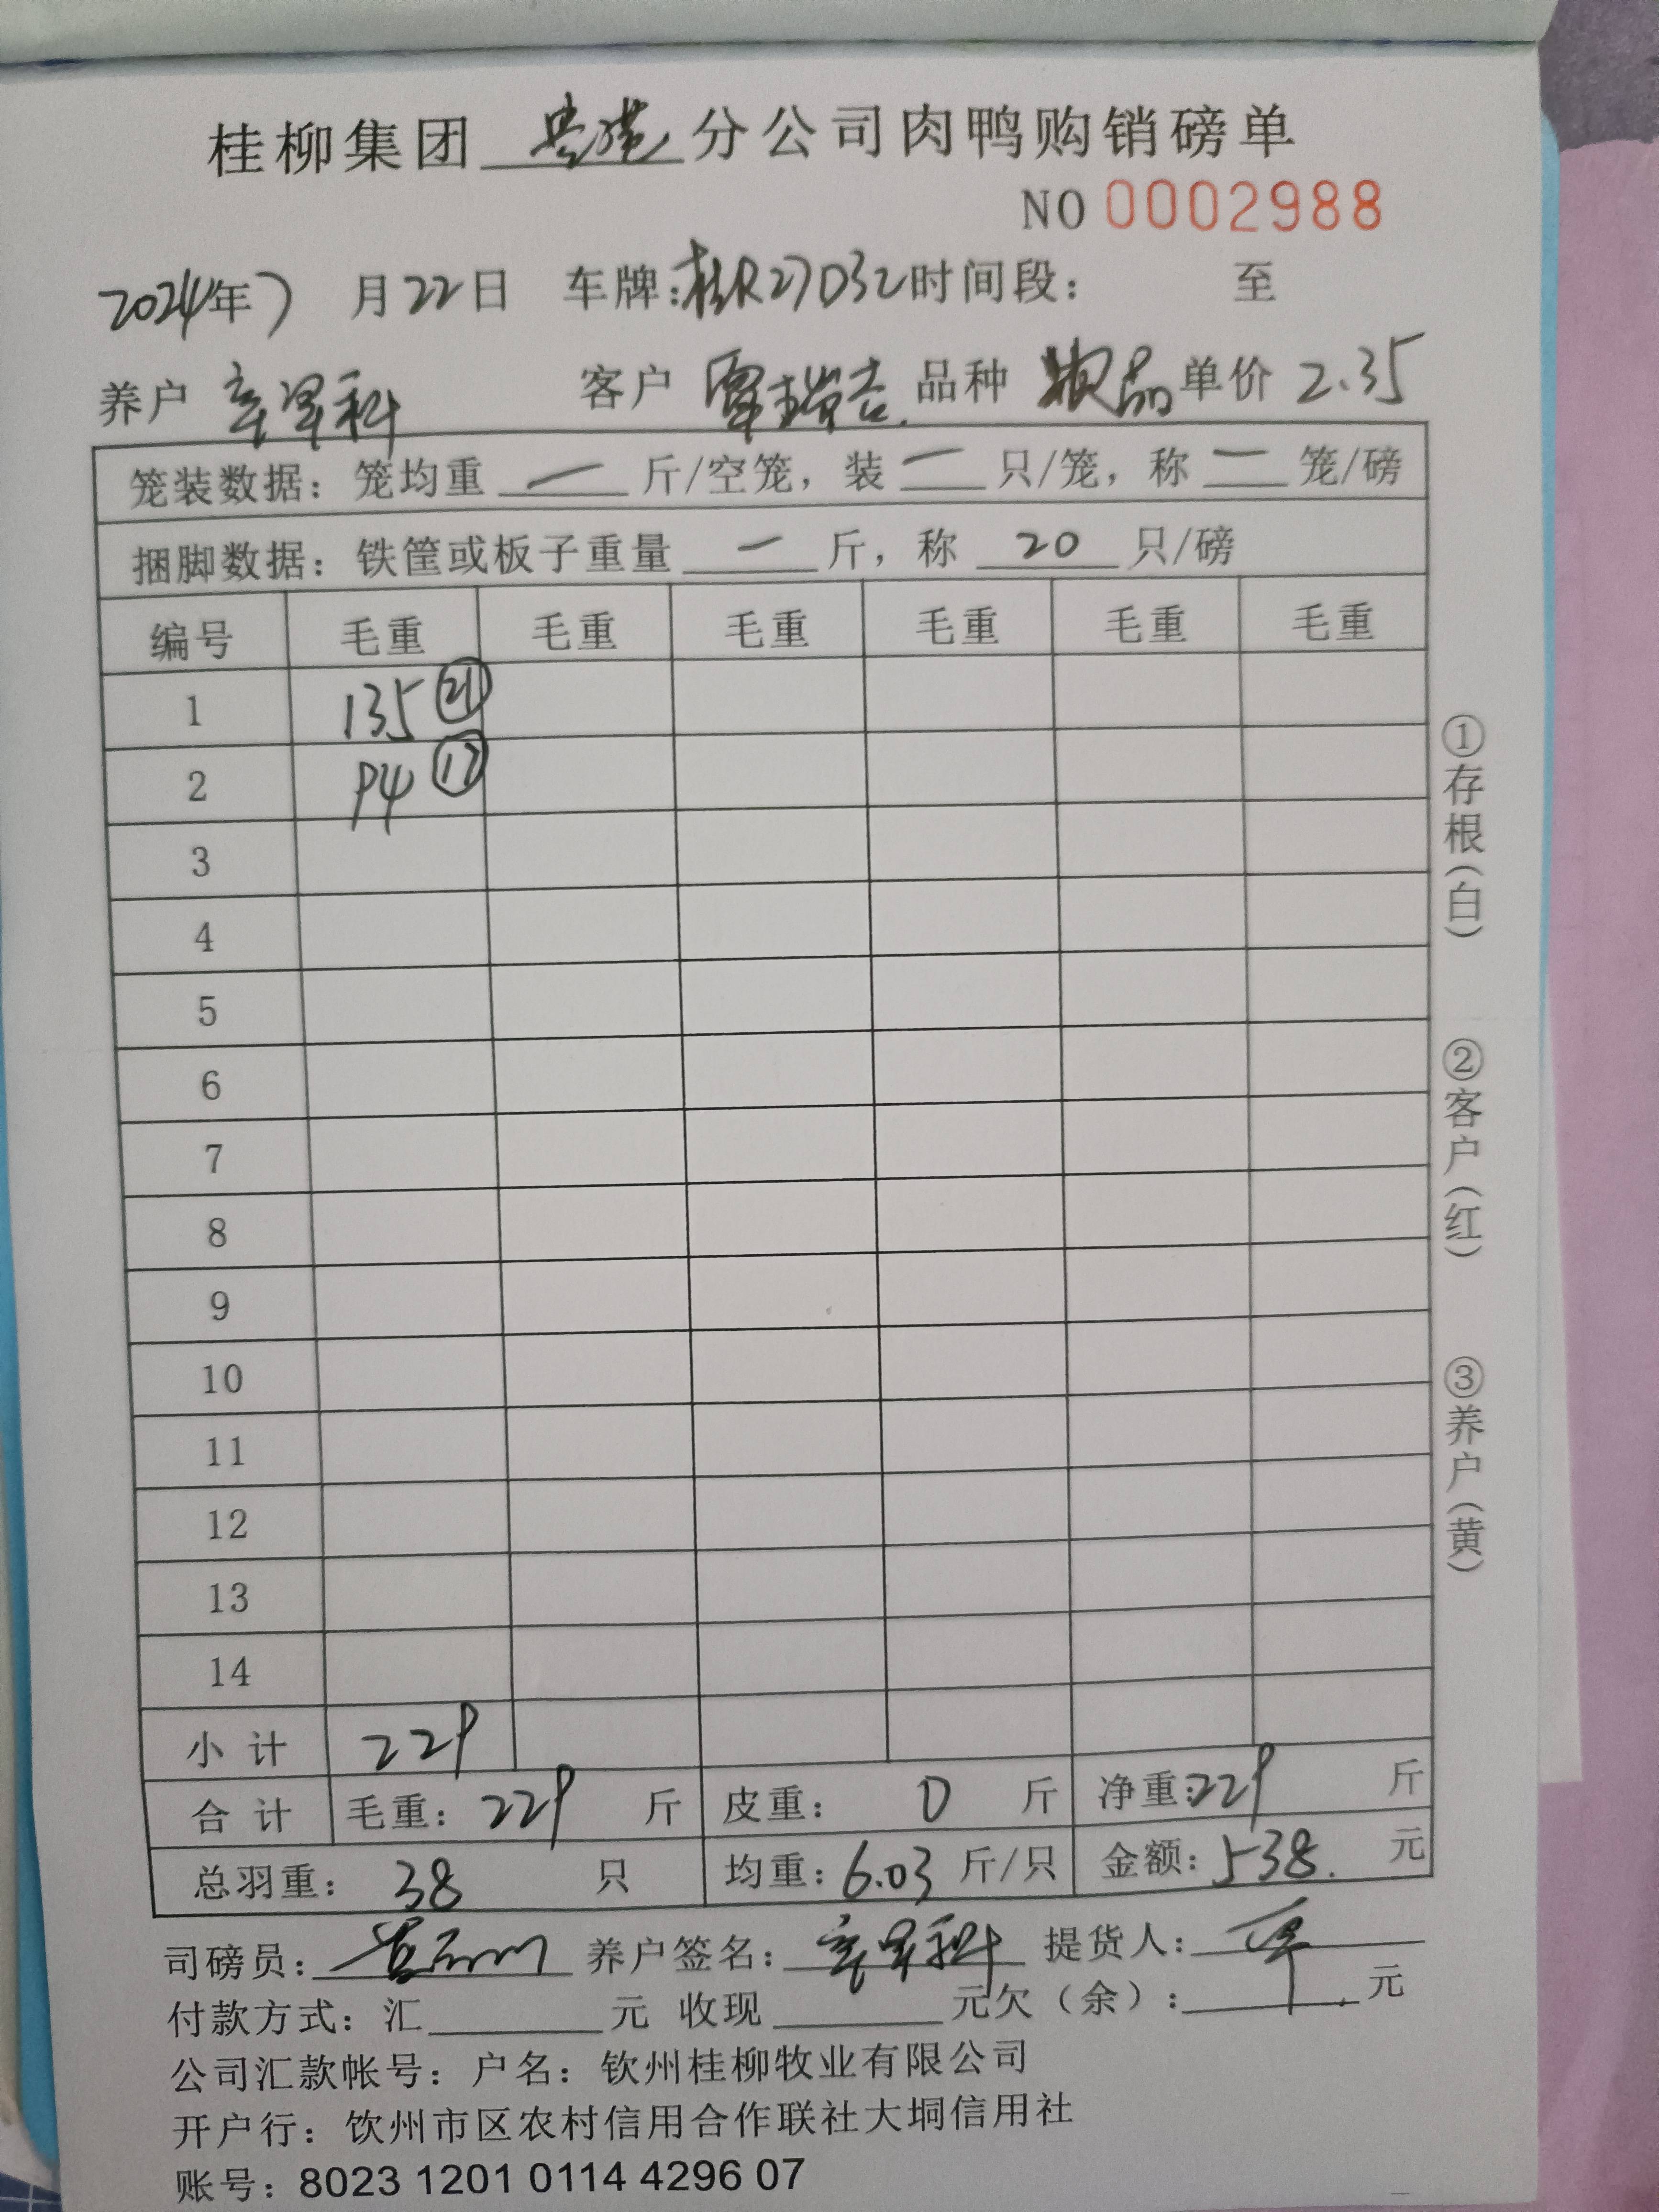 桂柳集团 贵港 分公司肉鸭购销磅单
NO 0002988
2024年7月22日 车牌:桂R27D32 时间段: 至
养户 客户 覃瑞吉 品种 次品 单价 2.35
笼装数据: 笼均重 一 斤/空笼, 装 一 只/笼, 称 一 笼/磅
捆脚数据: 铁筐或板子重量 一 斤, 称 20 只/磅
编号 毛重 毛重 毛重 毛重 毛重 毛重
1 135 ㉑
2 94 ⑰
3
4
5
6
7
8
9
10
11
12
13
14
小计 229
合计 毛重: 229 斤 皮重: 0 斤 净重: 229 斤
总羽重: 38 只 均重: 6.03 斤/只 金额: 538. 元
司磅员: 养户签名: 提货人: 覃
付款方式: 汇 元 收现 元欠(余): 元
公司汇款帐号: 户名: 钦州桂柳牧业有限公司
开户行: 钦州市区农村信用合作联社大垌信用社
账号: 8023 1201 0114 4296 07
①存根(白)
②客户(红)
③养户(黄)